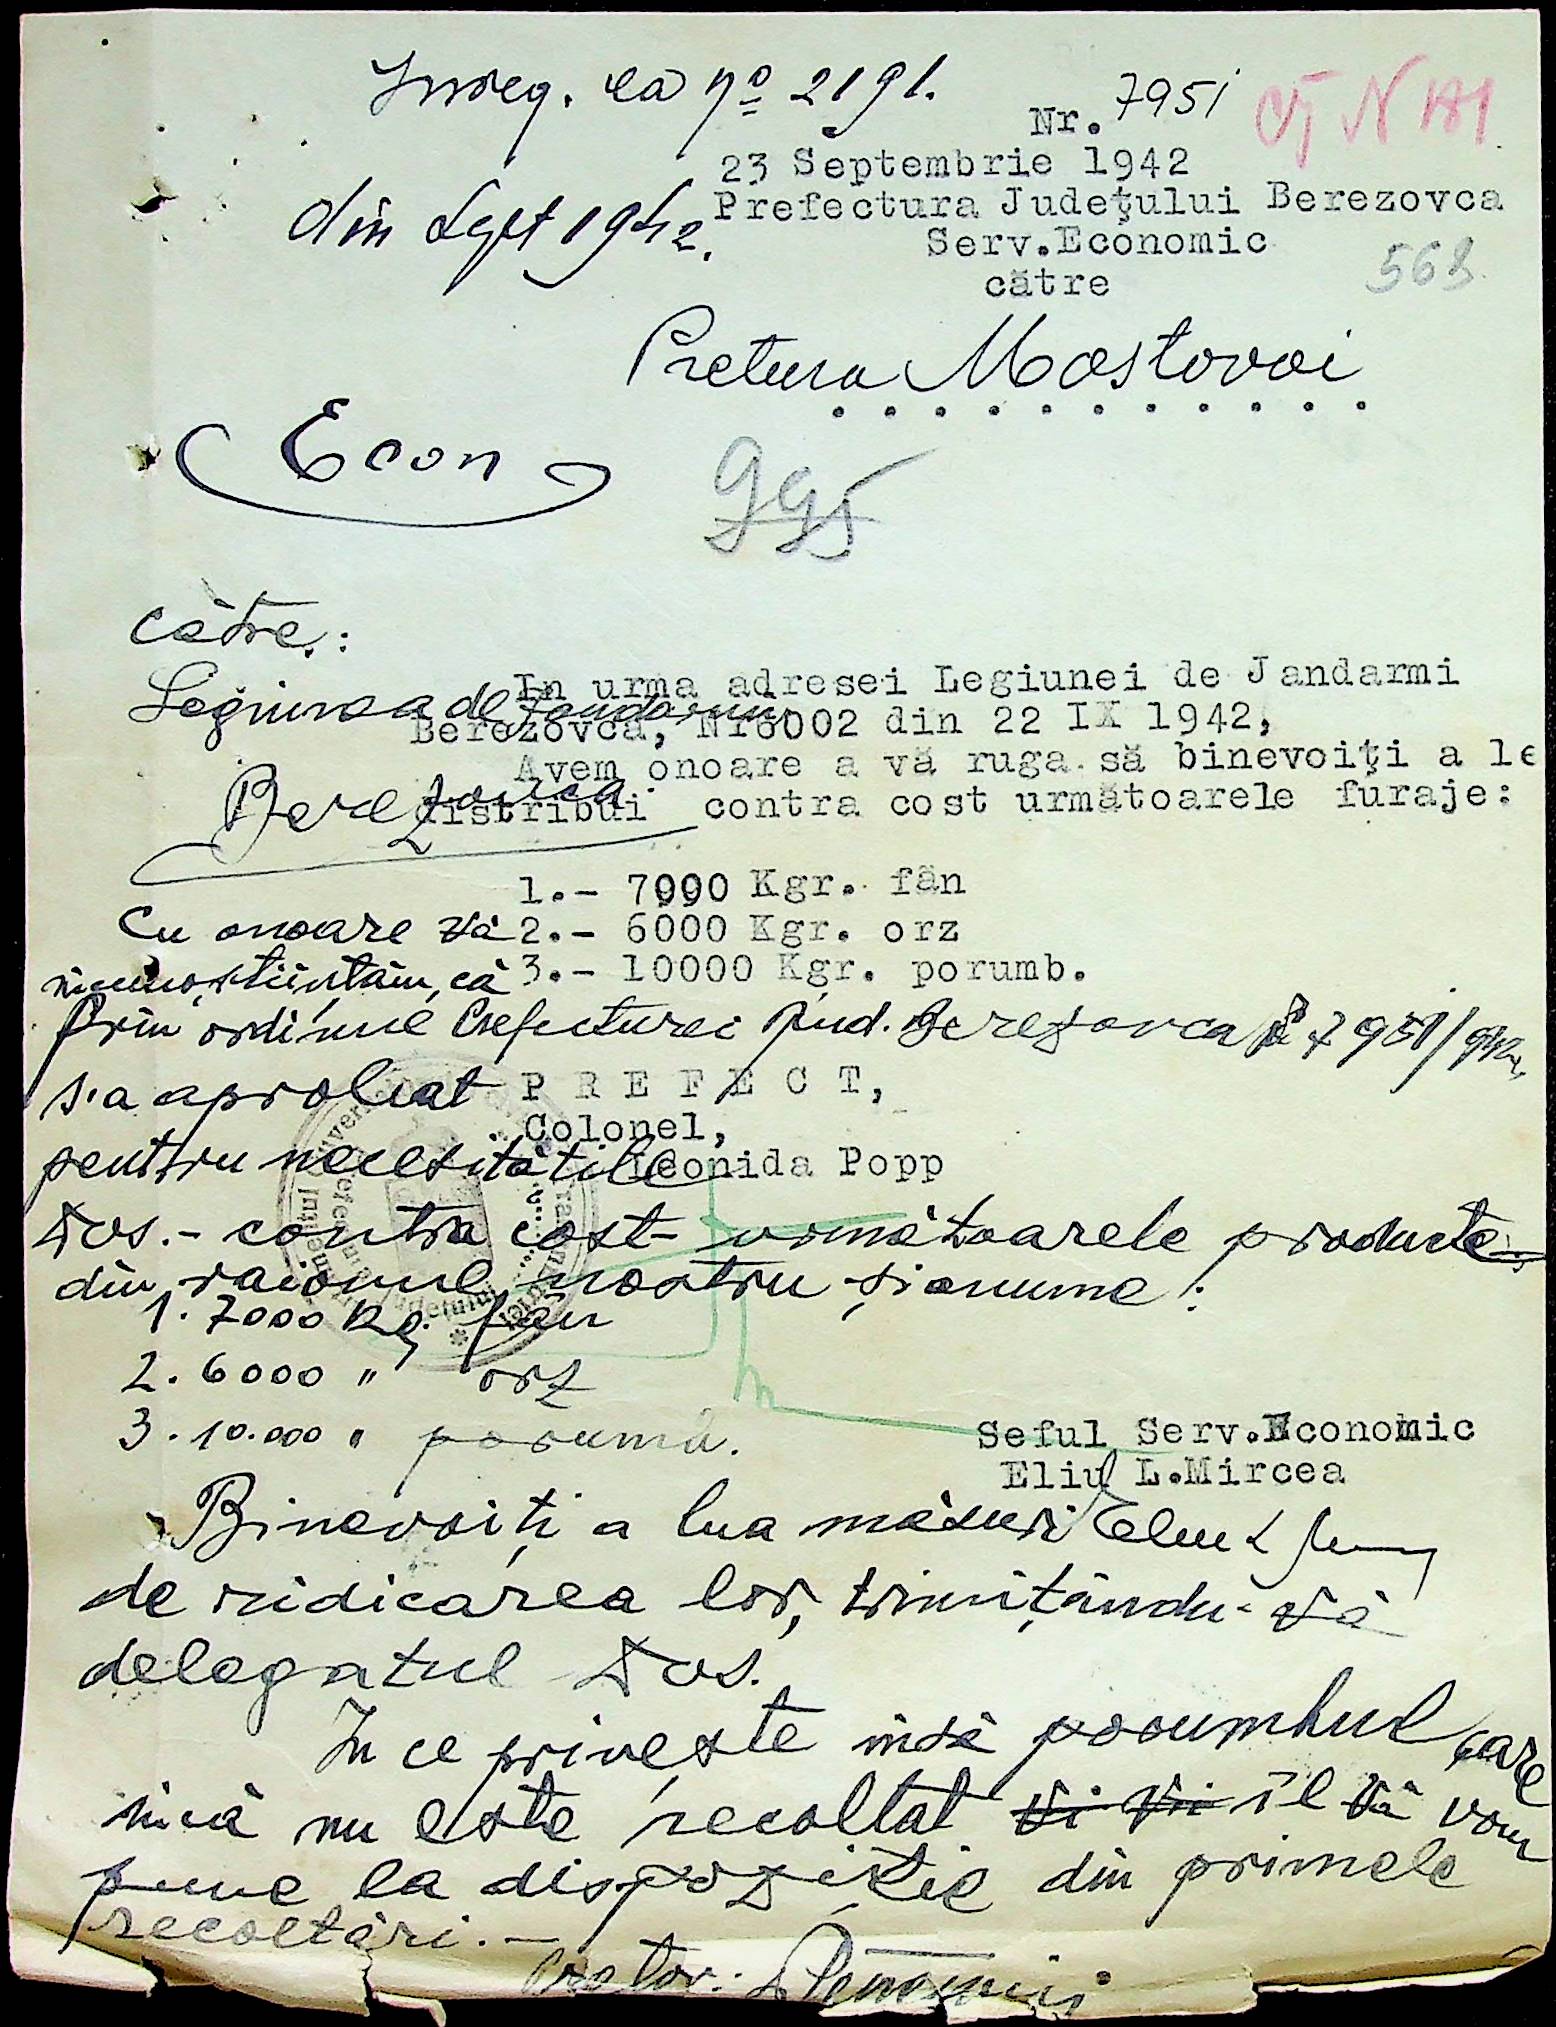 Inreg. la No 2191.
din Sept 1942.
Nr. 7951
23 Septembrie 1942
Prefectura Judeţului Berezovca
Serv.Economic
către
568
Pretura Mostovoi
Econ
995
In urma adresei Legiunei de Jandarmi
Berezovca, Nr6002 din 22 IX 1942,
Avem onoare a vă ruga să binevoiţi a le
distribui contra cost următoarele furaje:
1.- 7000 Kgr. fân
2.- 6000 Kgr. orz
3.- 10000 Kgr. porumb.
P R E F E C T,
Colonel,
Leonida Popp
Seful Serv.Economic
Eliu L.Mircea
Către:
Legiunea de Jandarmi
Berezovca.
Cu onoare vă
incunoștiințăm, că
Prin ordinul Prefecturei Jud. Berezovca No 7951/942,
s'a aprobat
pentru necesitățile
Dvs.- contra cost următoarele producte
din raionul nostru și anume:
1. 7000 Kg. fân
2. 6000 " orz
3. 10.000 " porumb.
Binevoiți a lua măsuri
de ridicarea lor, trimițându-vă
delegatul Dvs.
In ce privește însă porumbul, care
incă nu este recoltat îl vă vom
pune la dispoziție din primele
recoltări.-
Pretor: